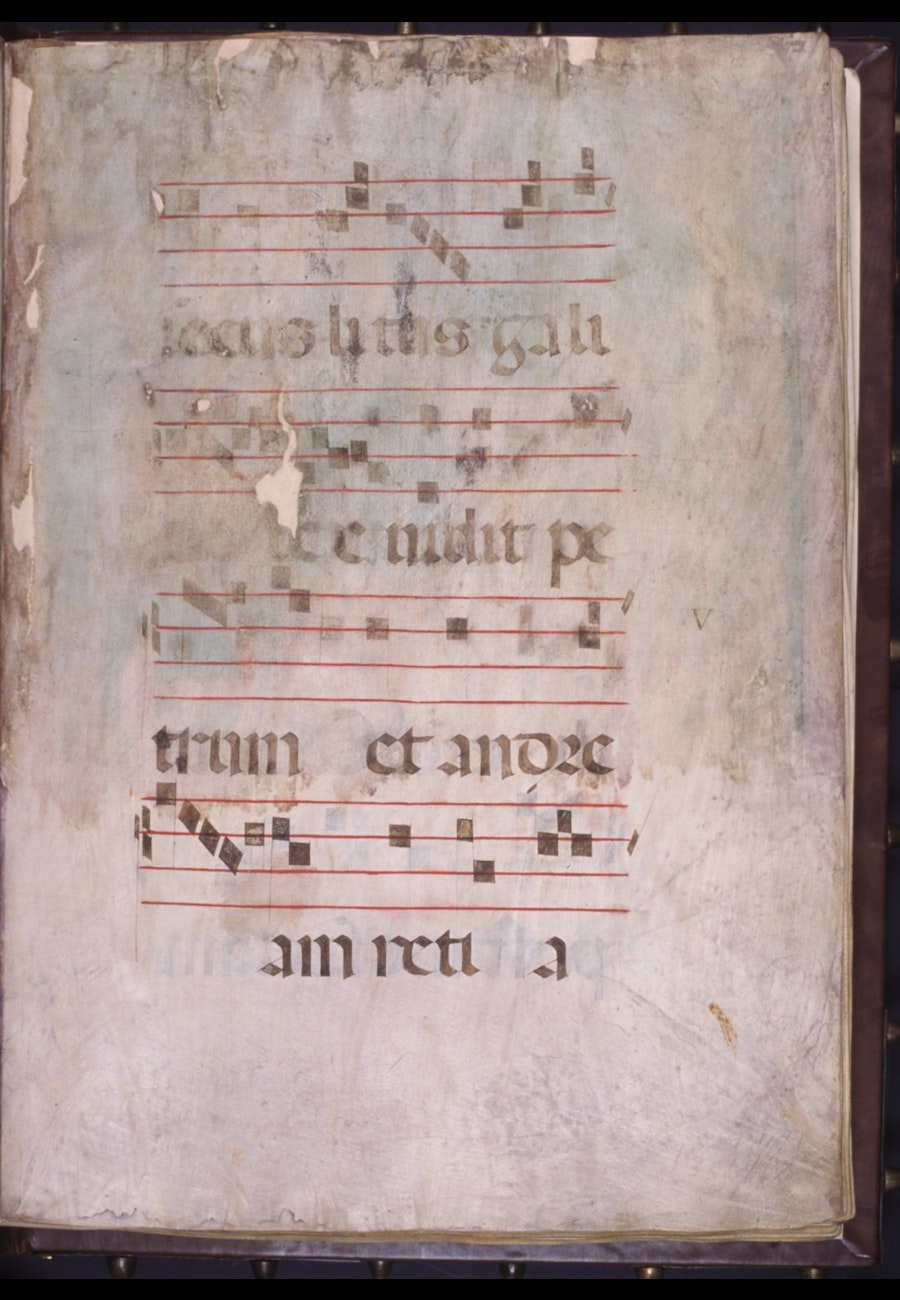 secus litus gali
e e uidit pe
V
trum et andre
am reti a